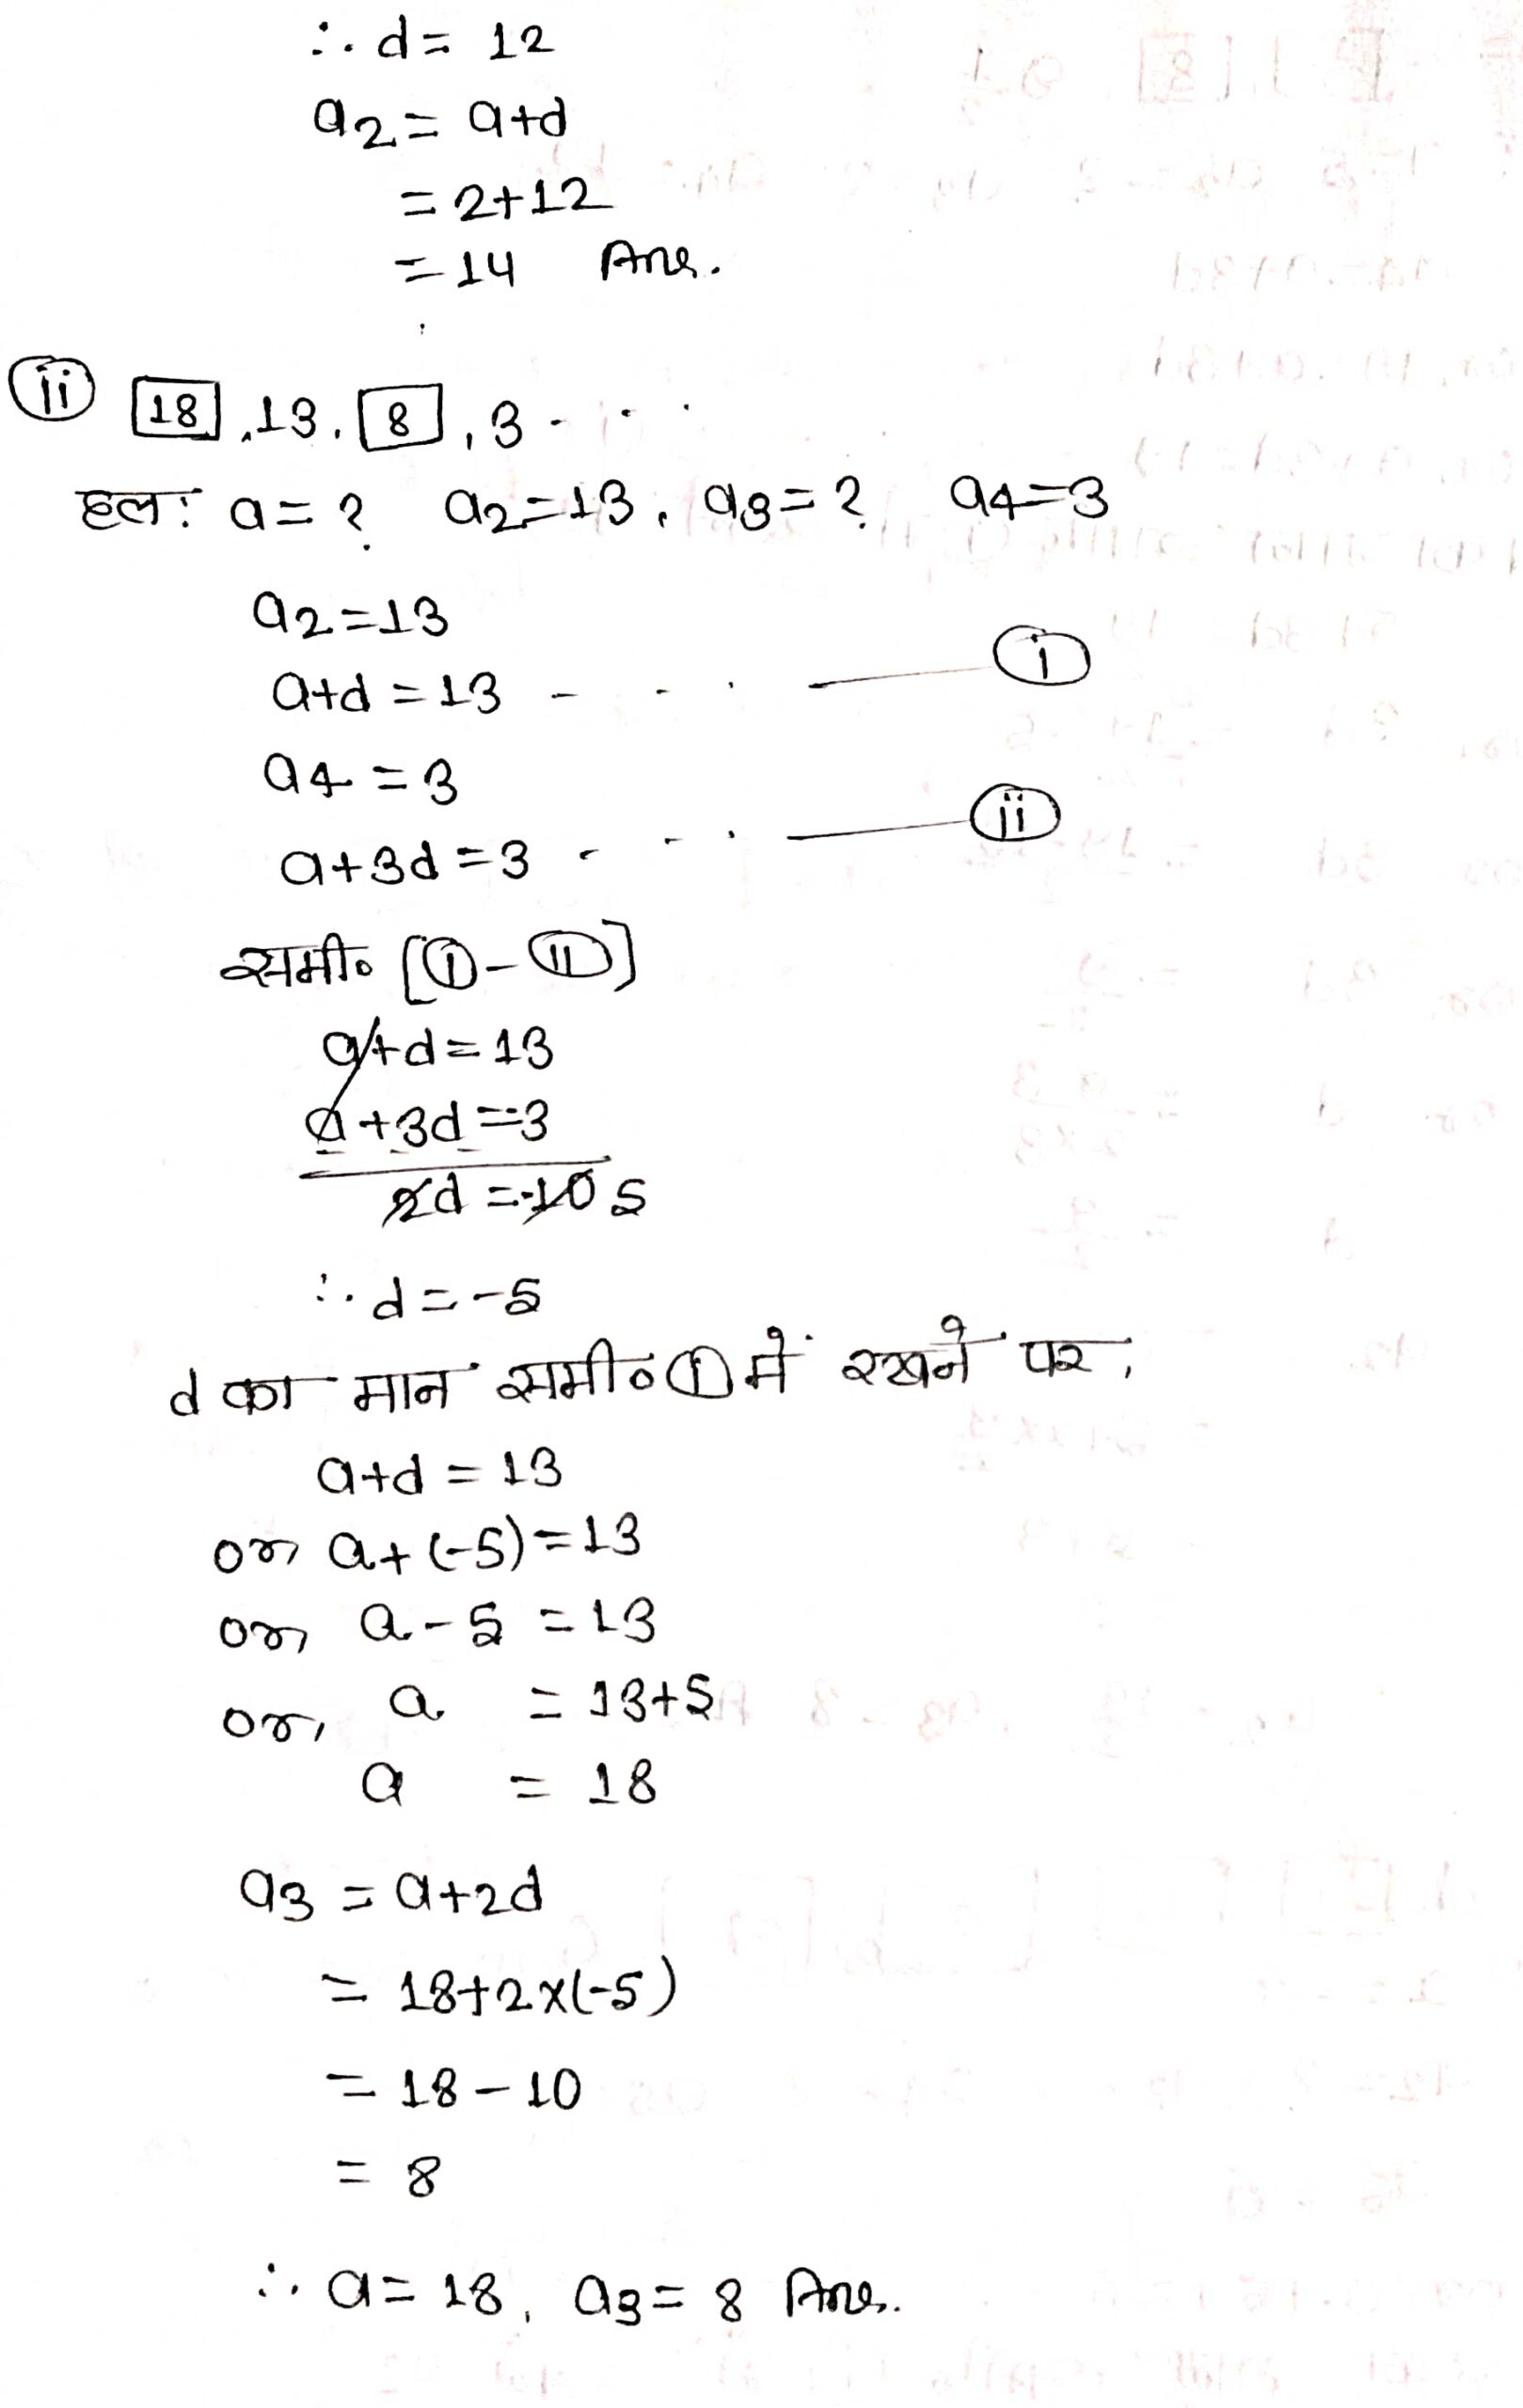 ∴ d = 12
a2 = a+d
= 2+12
= 14 Ans.
(ii) [18], 13, [8], 3 - - -
हल: a = ? a2 = 13, a3 = ? a4 = 3
a2 = 13
a+d = 13 - - - —— (i)
a4 = 3
a+3d = 3 - - - —— (ii)
समी० [(i) - (ii)]
a+d = 13
a+3d = 3
- - -
2d = -10 5
∴ d = -5
d का मान समी० (i) में रखने पर,
a+d = 13
or, a+(-5) = 13
or, a-5 = 13
or, a = 13+5
a = 18
a3 = a+2d
= 18+2×(-5)
= 18-10
= 8
∴ a = 18, a3 = 8 Ans.